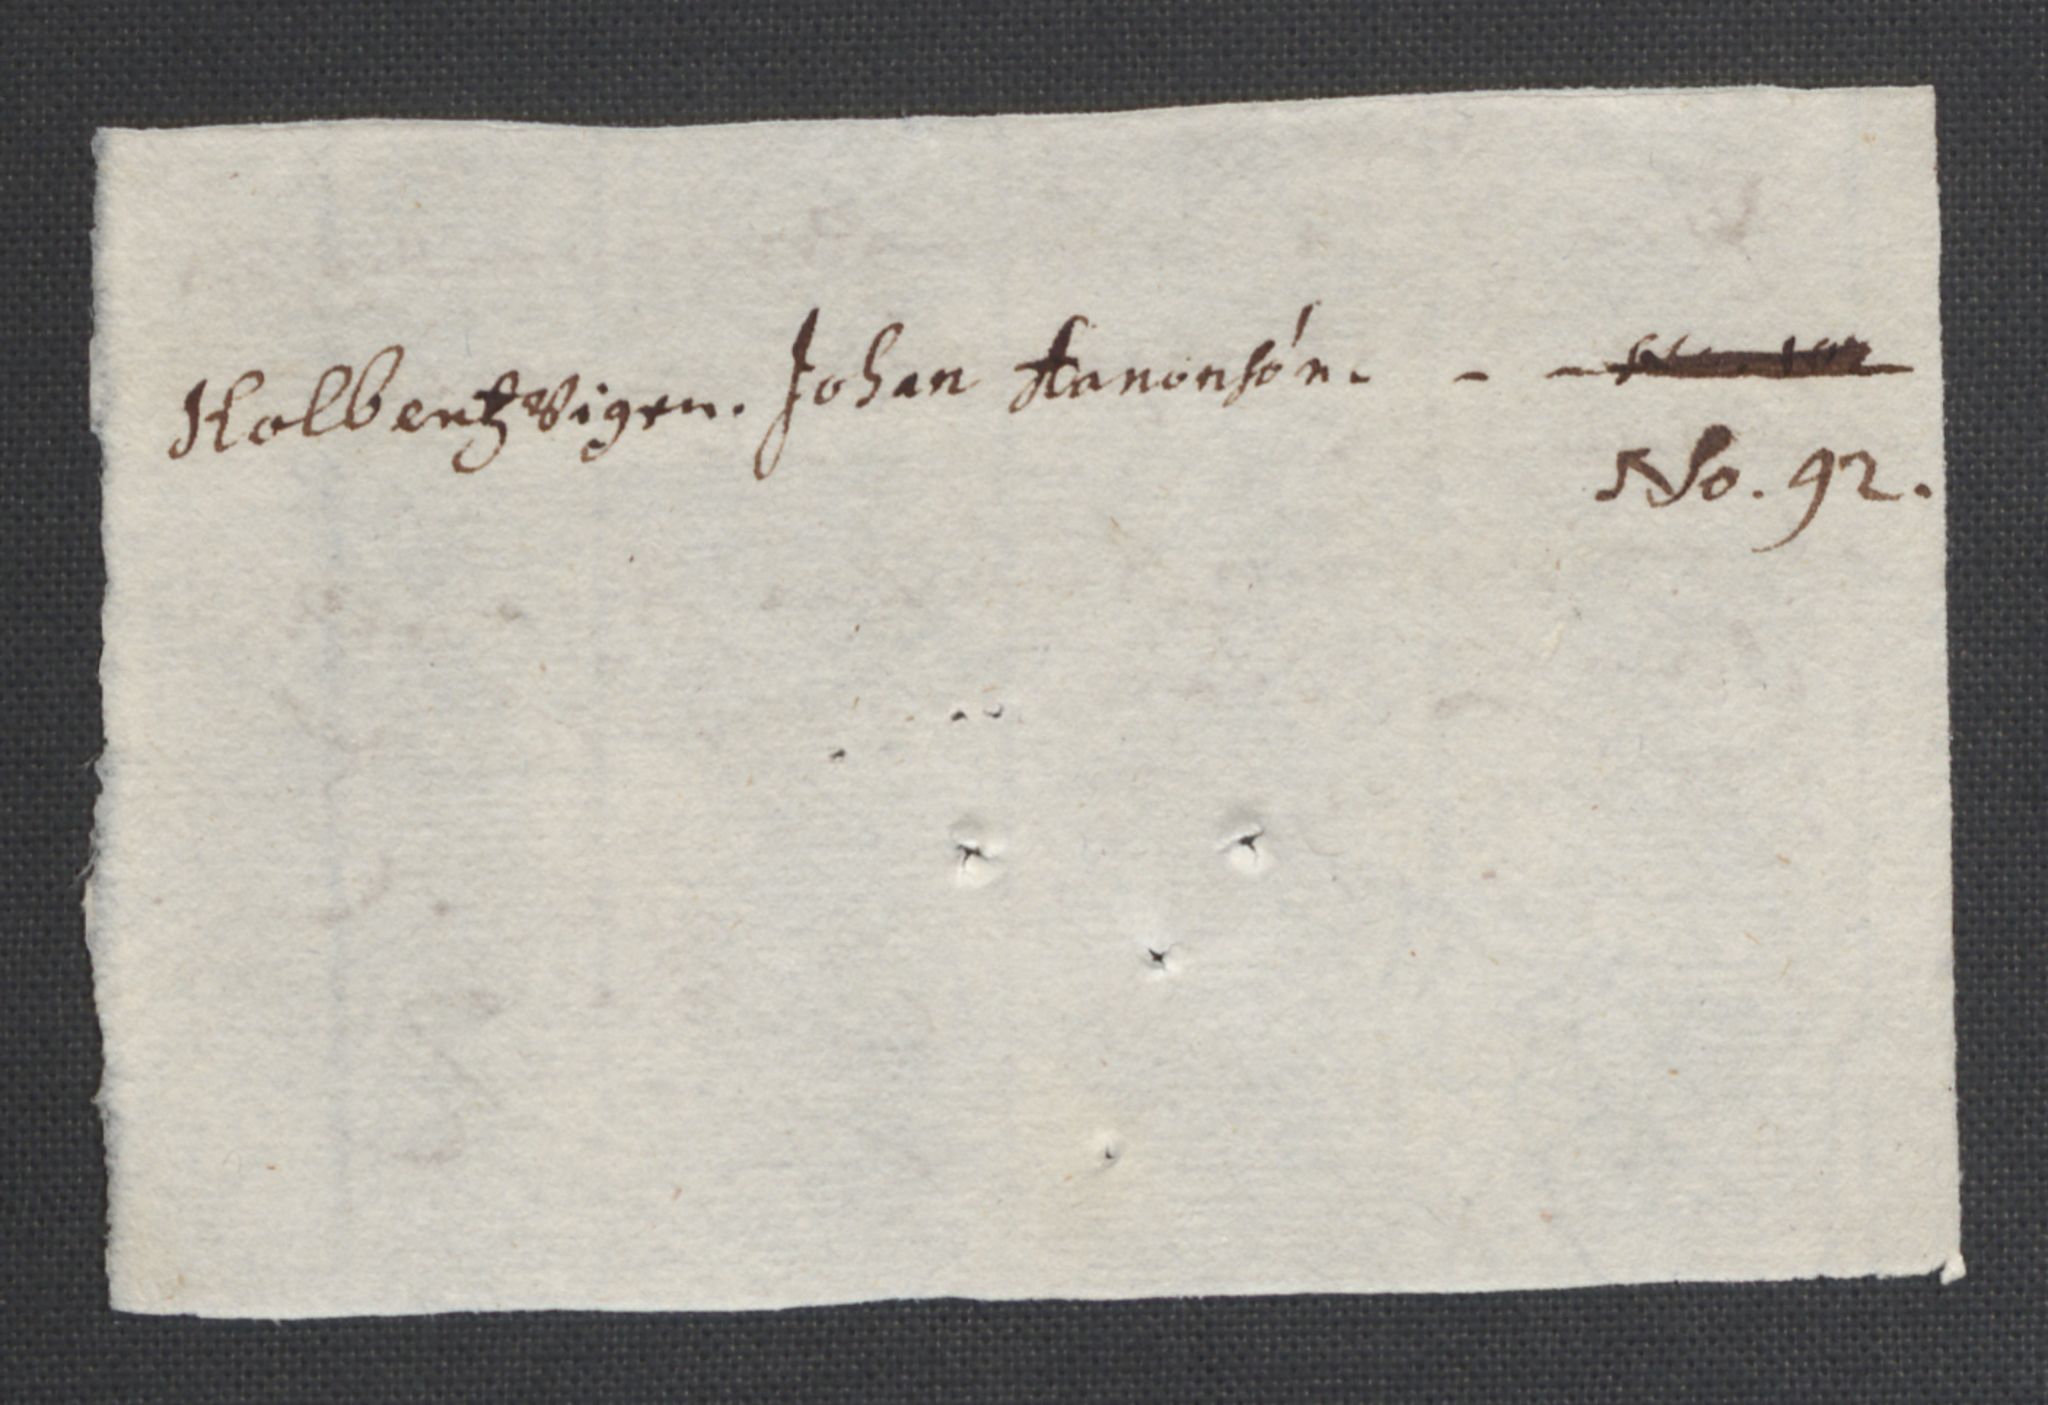 Kolbentzvigen. Johan Aanonsøn. - -
No. 92.